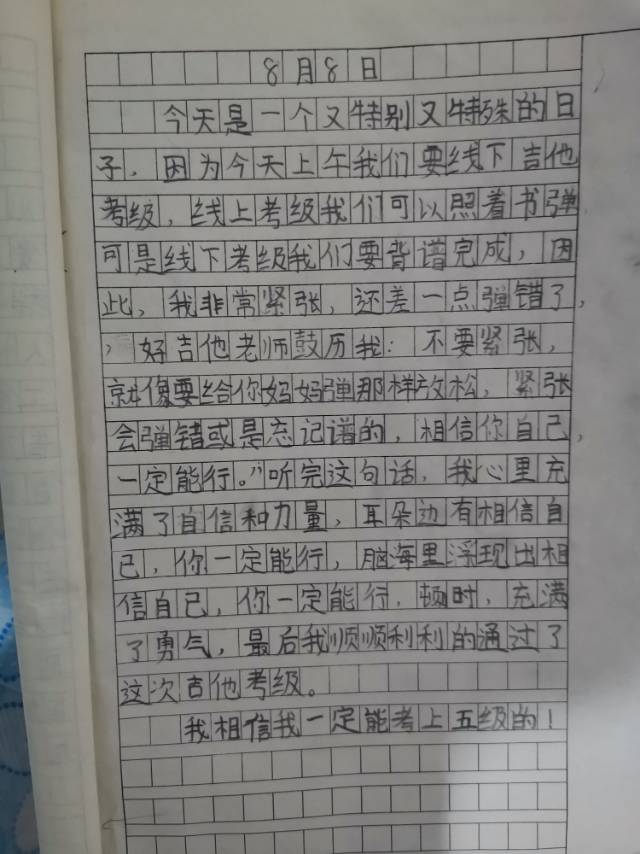 8月8日
今天是一个又特别又特殊的日
子，因为今天上午我们要线下吉他
考级，线上考级我们可以照着书弹
可是线下考级我们要背谱完成，因
此，我非常紧张，还差一点弹错了，
，好吉他老师鼓历我：不要紧张，
就像要给你妈妈弹那样放松，紧张
会弹错或是忘记谱的，相信你自己，
一定能行。”听完这句话，我心里充
满了自信和力量，耳朵边有相信自
己，你一定能行，脑海里浮现出相
信自己，你一定能行，顿时，充满
了勇气，最后我顺顺利利的通过了
这次吉他考级。
我相信我一定能考上五级的！